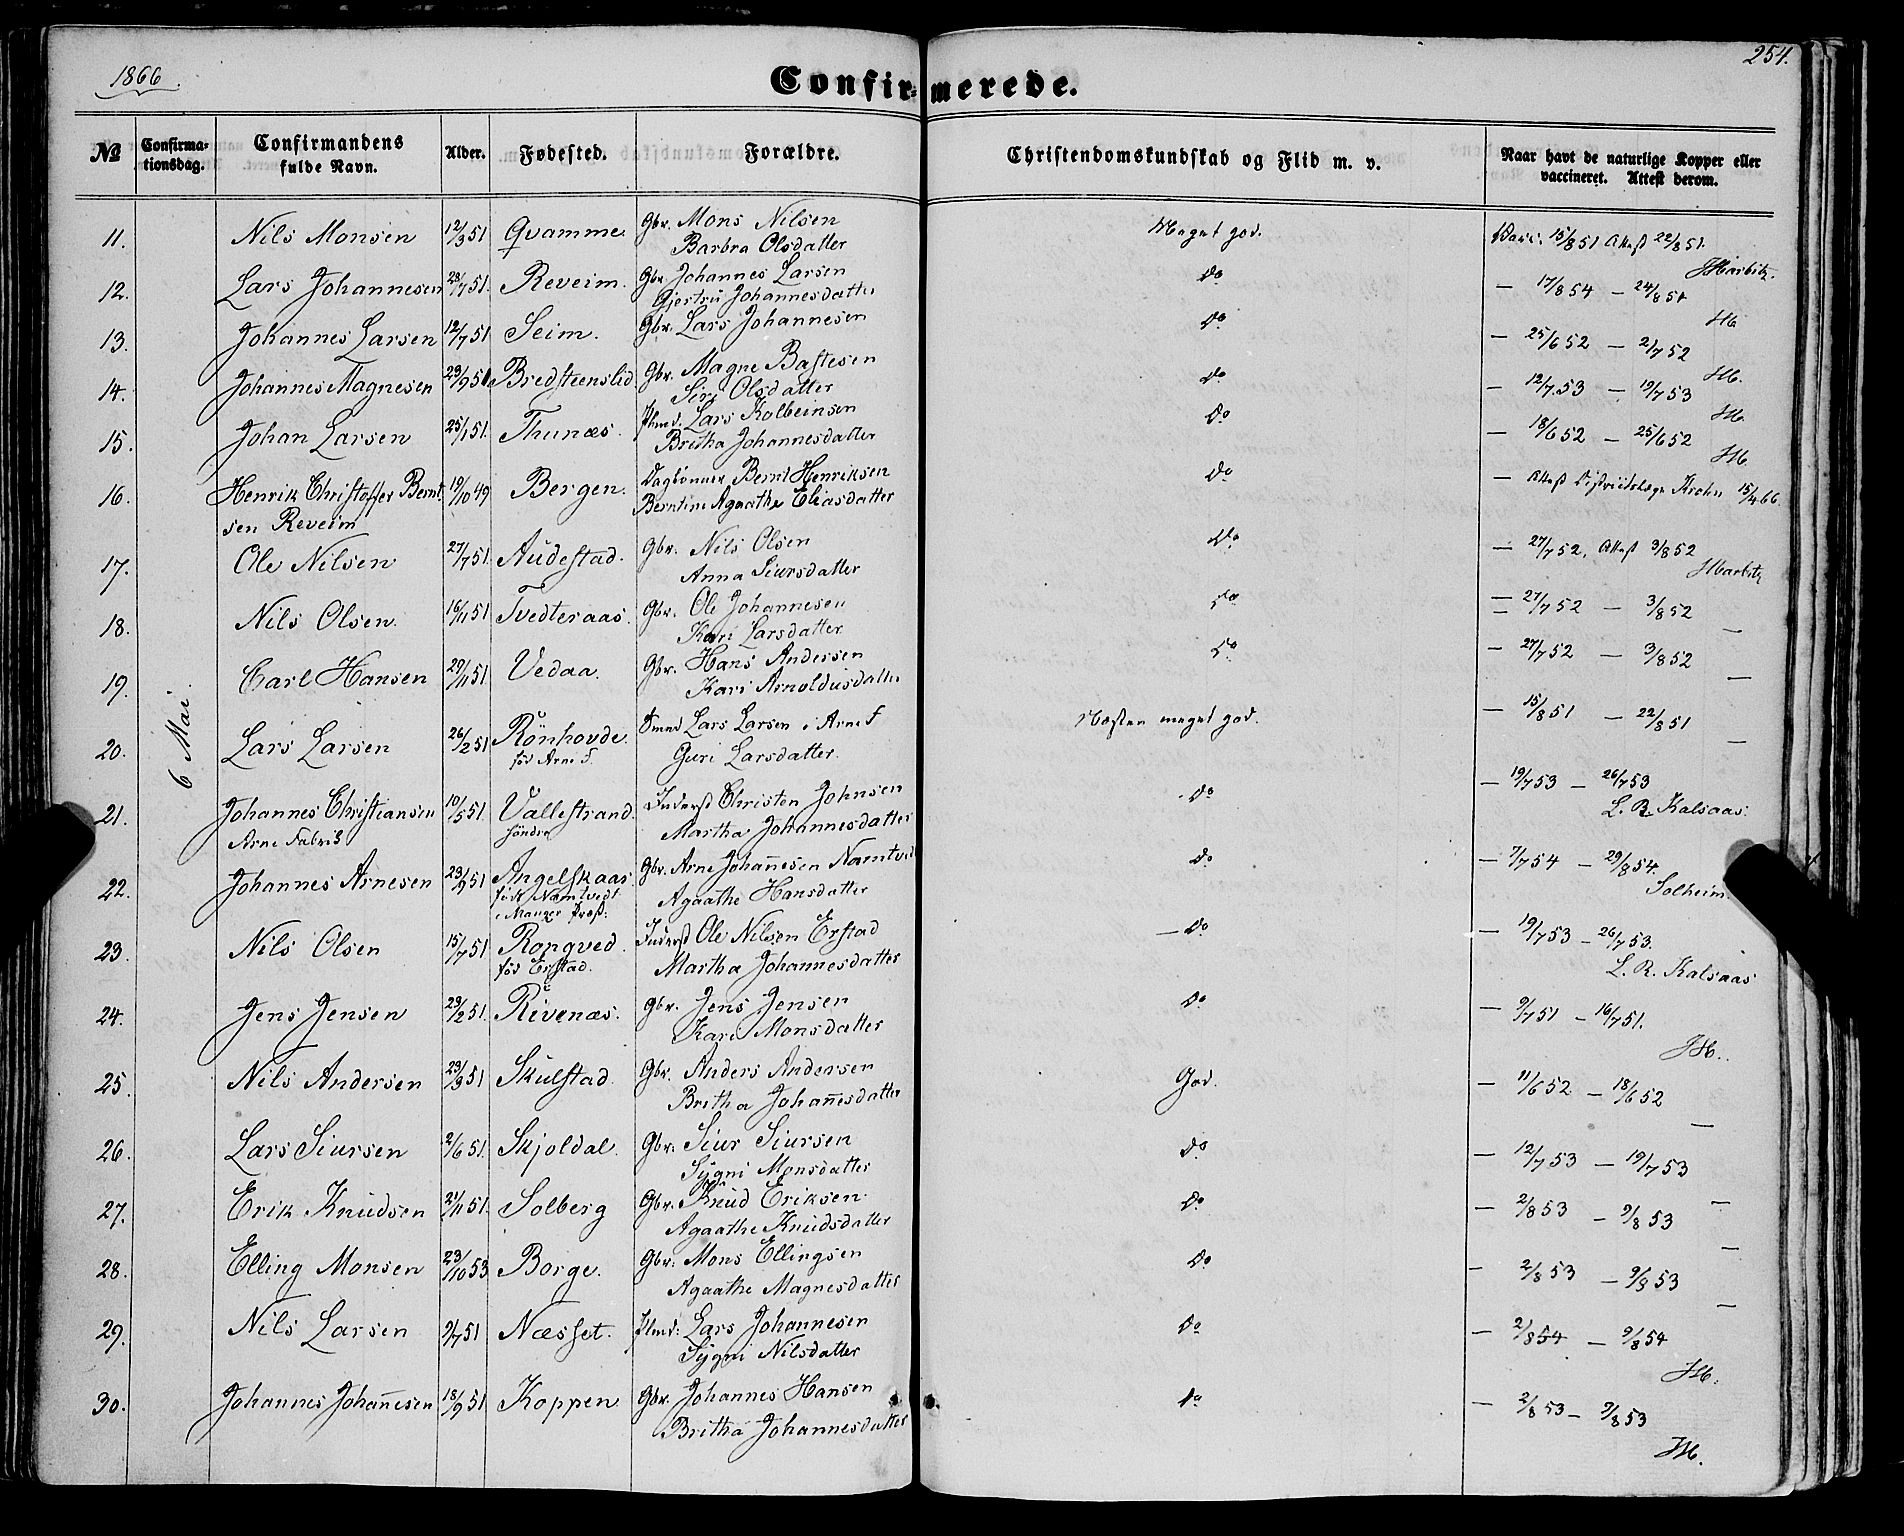 1866.
254.
Confirmerede.
№ Confirmationsdag. Confirmandens fulde Navn. Alder. Fødested. Forældre. Christendomskundskab og Flid m. v. Naar havt de naturlige Kopper eller vaccineret. Attest derom.
6 Mai.
11. Nils Monsen 12/3 51 Qvamme. Gbr. Mons Nilsen Meget god. Vacc. 15/8 51 Attest 22/8 51.
Barbra Olsdatter
12. Lars Johannesen 28/7 51. Reveim. Gbr. Johannes Larsen Do — 17/8 54 — 24/8 54
Gjertru Johannesdatter
13. Johannes Larsen 12/7 51 Seim. Gbr. Lars Johannesen Do — 25/6 52 — 2/7 52
14. Johannes Magnesen 23/9 51 Bredsteenslid Gbr. Magne Bastesen Do — 12/7 53 — 19/7 53
Siri Olsdatter
15. Johan Larsen 25/1 51. Thunæs. Plmd: Lars Kolbeinsen Do — 18/6 52 — 25/6 52
Britha Johannesdatter
16. Henrik Christoffer Bernt- 19/10 49 Bergen. Daglønner Bernt Henriksen Do — Attest Districtslæge Krohn 15/4 66.
sen Reveim Berntine Agaathe Eliasdatter
17. Ole Nilsen 27/7 51. Audestad. Gbr. Nils Olsen Do — 27/7 52. Attest 3/8 52
Anna Siursdatter
18. Nils Olsen. 16/11 51 Tvedteraas. Gbr. Ole Johannesen Do — 27/7 52 — 3/8 52
Kari Larsdatter —
19. Carl Hansen 29/11 51 Vedaa. Gbr. Hans Andersen Do — 27/7 52 — 3/8 52
Kari Arnoldusdatter —
20. Lars Larsen 26/2 51 Rönhovde. Lars Larsen i Arne F Næsten meget god. — 15/8 51 — 22/8 51
fød Arne F. Guri Larsdatter. —
21. Johannes Christiansen 10/5 51. Vallestrand. Inderst Christen Johnsen Do — 19/7 53 — 26/7 53
Arne Fabrik söndre Martha Johannesdatter L. R. Kalsaas.
22. Johannes Arnesen 23/9 51 Angelskaas. Gbr. Arne Johañesen Namtved Do — 7/7 54 — 29/8 54.
født Namtvedt Agaathe Hansdatter Solheim
i Manger Præst:
23. Nils Olsen 15/7 51 Rongved. Inderst Ole Nilsen Erstad — Do — 19/7 53 — 26/7 53.
fød Erstad. Martha Johannesdatter L. R. Kalsaas
24. Jens Jensen 23/2 51. Rivenæs. Gbr. Jens Jensen Do — 9/7 51 — 16/7 51.
Kari Monsdatter
25. Nils Andersen 23/3 51 Skulstad. Gbr. Anders Andersen God. — 11/6 52 — 18/6 52
Britha Johañesdatter —
26. Lars Siursen 2/6 51. Skjoldal. Gbr: Siur Siursen Do — 12/7 53 — 19/7 53
Sygni Monsdatter —
27. Erik Knudsen 21/11 51. Solberg Gbr. Knud Eriksen. Do — 2/8 53 — 9/8 53
Agaathe Knudsdatter —
28. Elling Monsen 23/10 53 Borge. Gbr. Mons Ellingsen Do — 2/8 53 — 9/8 53
Agaathe Magnesdatter —
29. Nils Larsen 9/7 51 Næsset. Plmd: Lars Johannesen Do — 2/8 54 — 9/8 54
Sygni Nilsdatter
30. Johannes Johañesen 18/9 51 Koppen Gbr. Johannes Hansen Do — 2/8 53 — 9/8 53
Britha Johannesdatter